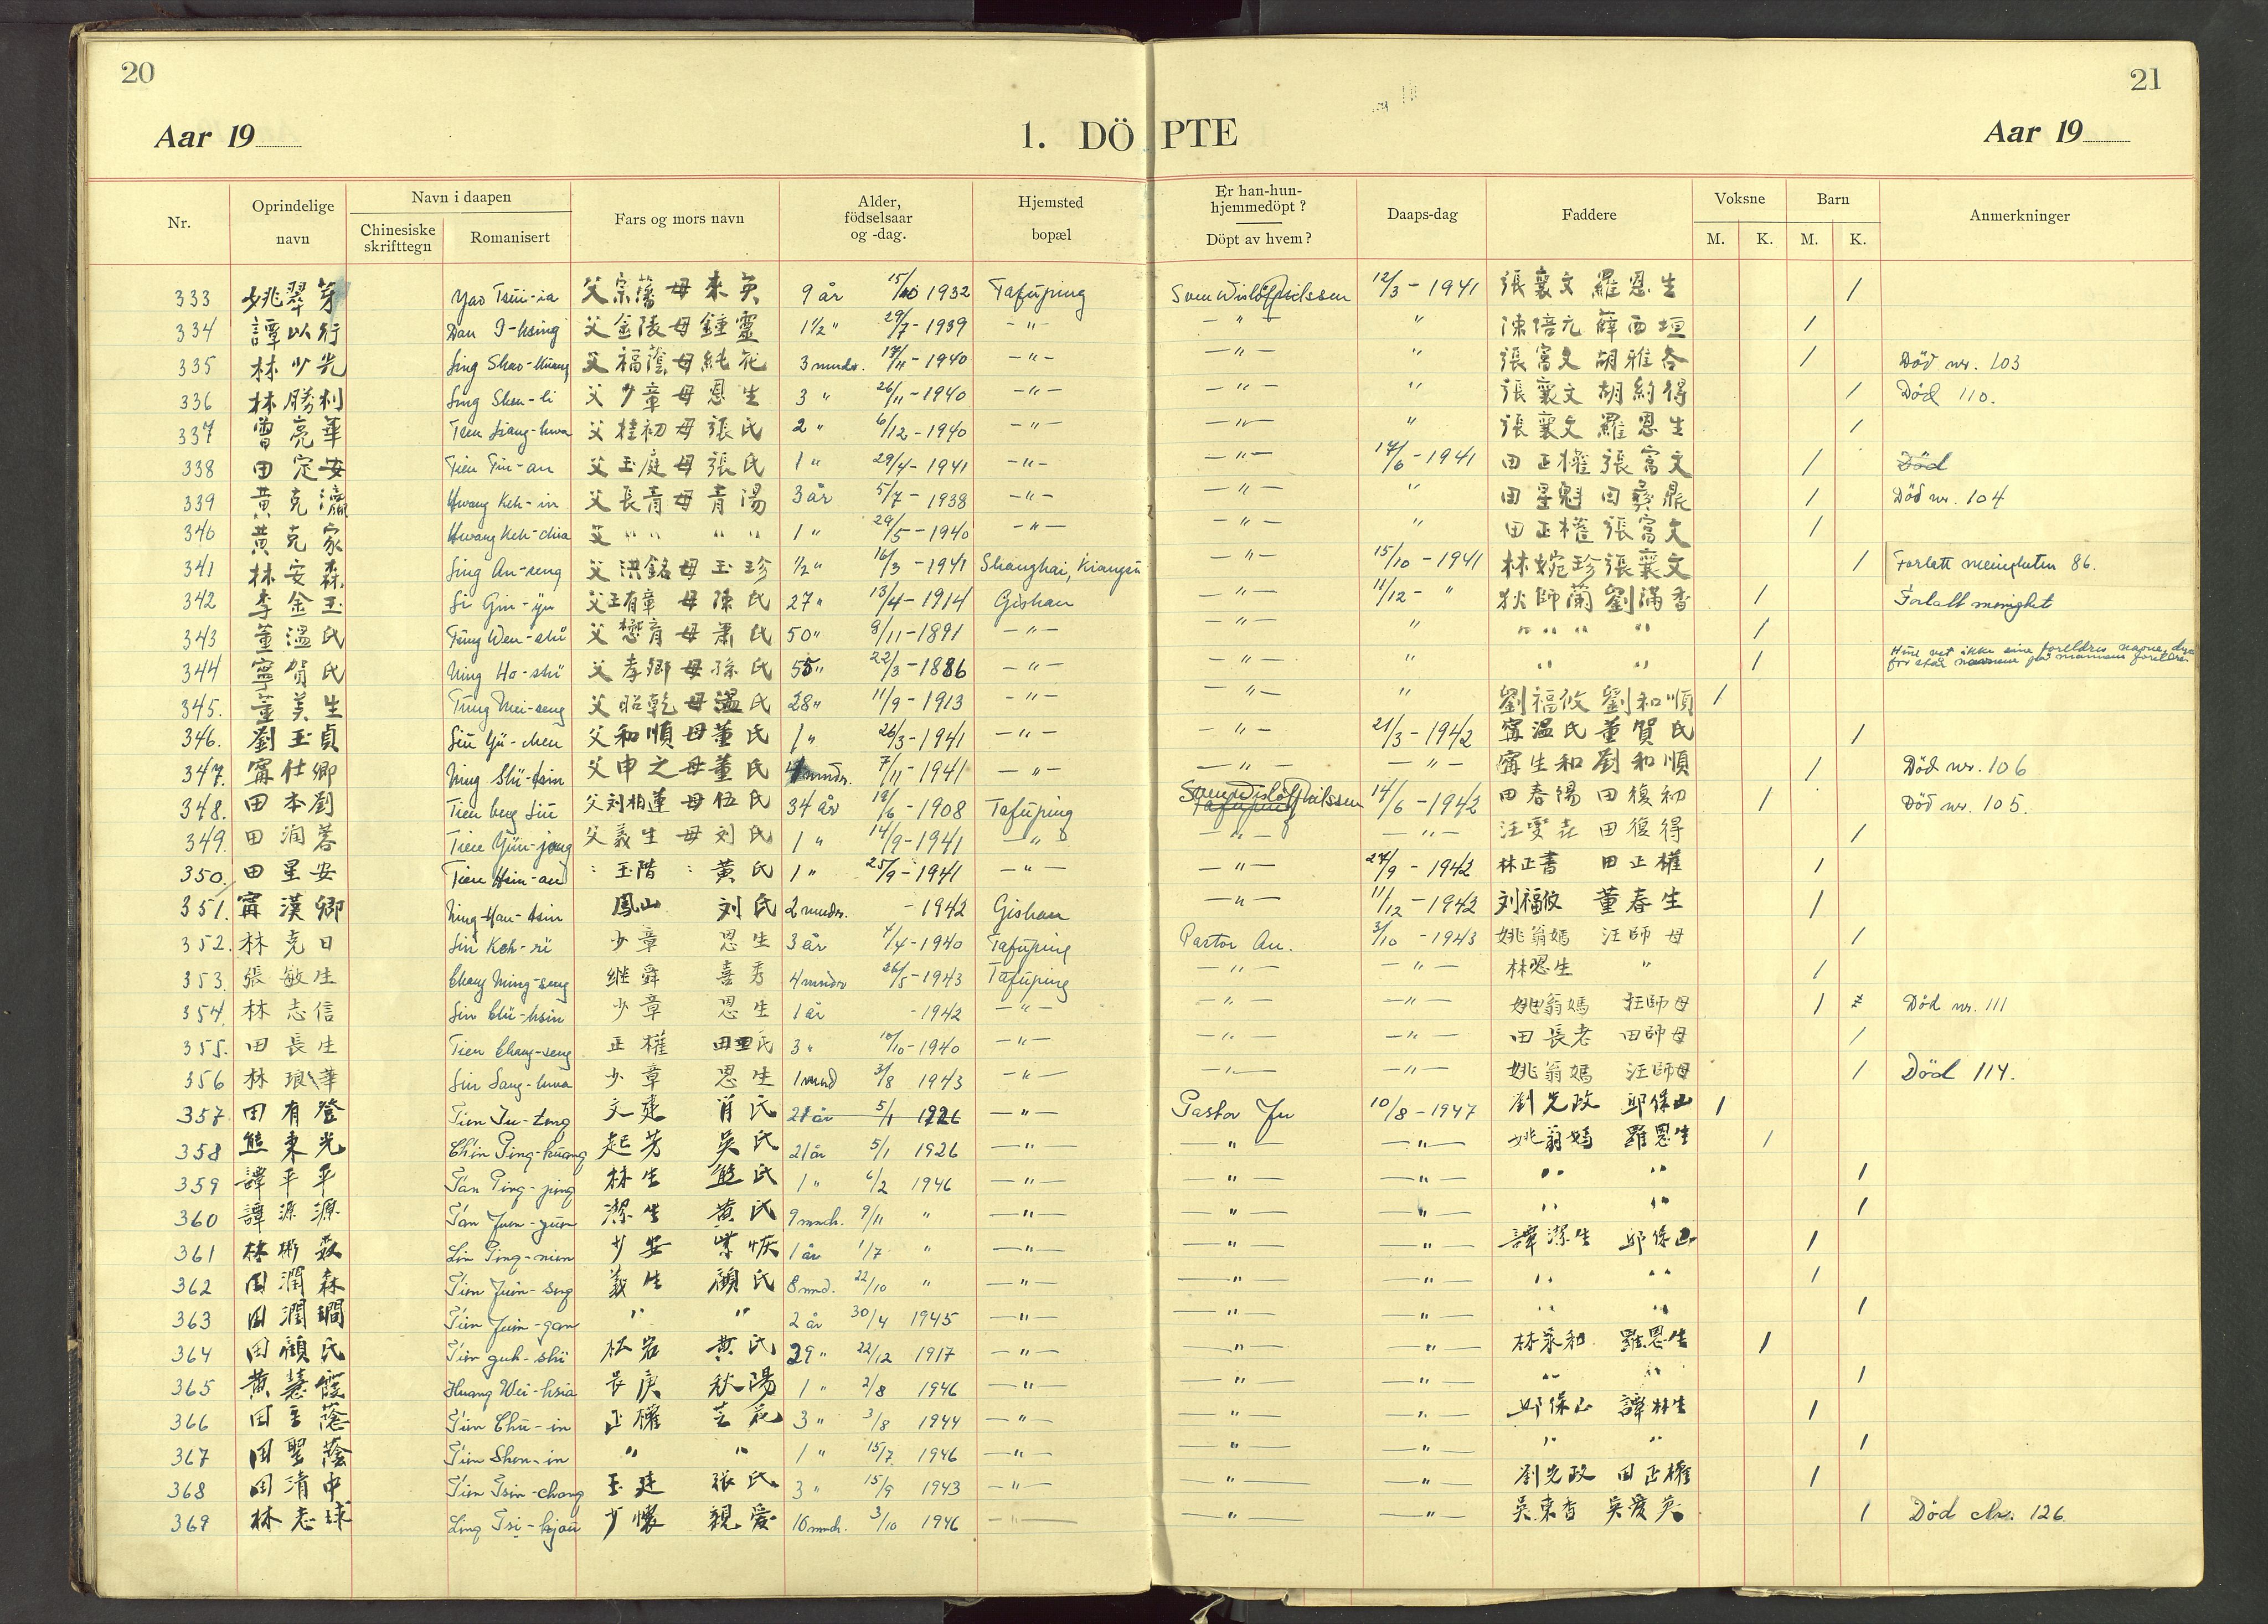 20
21
Aar 19
1. DÖPTE
Aar 19
Nr.
Oprindelige navn
Navn i daapen
Chinesiske skrifttegn
Romanisert
Fars og mors navn
Alder, födselsaar og -dag.
Hjemsted bopæl
Er han-hun-hjemmedöpt?
Döpt av hvem?
Daaps-dag
Faddere
Voksne
M. K.
Barn
M. K.
Anmerkninger
333 姚翠芽 Yao Tsüi-ia 父宗藩母來英 9 år 1932 Tafuping 12/3 - 1941 張襄文 羅恩生 1
334 譚以行 Dan I-hsing 父金陵母鍾靈 1½ " 29/7 - 1939 - " - - " - " 陳倍元 薛西垣 1
335 林少光 Ling Shao-kuang 父福蔭母純花 3 mndr. 17/11 - 1940 - " - - " - " 張富文 胡雅各 1 Död nr. 103
336 林勝利 Ling Shen-li 父少章母恩生 3 " 26/11 - 1940 - " - - " - " 張襄文 胡約得 1 Död 110.
337 曾亮華 Tsen Liang-hwa 父桂初母張氏 2 " 6/12 - 1940 - " - - " - " 張襄文 羅恩生 1
338 田定安 Tien Tin-an 父玉庭母張氏 1 " 29/4 - 1941 - " - - " - 17/6 - 1941 田正權 張富文 1 Död
339 黃克瀛 Hwang Keh-in 父長青母青陽 3 år 5/7 - 1938 - " - - " - " 田星魁 田彝鼎 1 Död nr. 104
340 黃克家 Hwang Keh-chia 父 " " " " 1 " 29/5 - 1940 - " - - " - " 田正權 張富文 1
341 林安森 Ling An-seng 父洪銘母玉珍 ½ " 16/3 - 1941 Shanghai, Kiangsu - " - 15/10 - 1941 林婉珍 張襄文 1 Forlatt menigheten 86.
342 李金玉 Li Gin-yu 父王有章 母陳氏 27 " 13/4 - 1914 Gishan - " - 11/12 - " 狄師蘭 劉滿香 1 Forlatt menighet
343 董溫氏 Tung Wen-shï 父懋育母蕭氏 50 " 9/11 - 1891 - " - - " - " " " " " 1
344 寧賀氏 Ning Ho-shï 父孝卿母孫氏 55 " 22/3 - 1886 - " - - " - " " " 1
345. 董美生 Tung Mei-seng 父昭乾母溫氏 28 " 11/9 - 1913 - " - - " - " 劉福攸 劉和順 1
346. 劉玉貞 Liu Yü-chen 父和順母董氏 1 " 26/3 - 1941 - " - - " - 21/3 - 1942 甯溫氏 董賀氏 1
347. 甯仕卿 Ning Shï-tsin 父申之母董氏 4 mndr. 7/11 - 1941 - " - - " - - " - 甯生和 劉和順 1 Död nr. 106
348. 田本劉 Tien beng Liu 父刘柏蓮 母伍氏 34 år 1908 Tafuping 14/6 - 1942 田春陽 田復初 1 Död nr. 105.
349. 田潤蓉 Tien Yün-jong 父義生 母刘氏 1 " 14/9 - 1941 - " - - " - - " - 田復得 1
350. 田星安 Tien Hsin-an : 玉階 : 黃氏 1 " 25/9 - 1941 - " - - " - 27/9 - 1942 林正書 田正權 1
351. 甯漢卿 Ning Han-tsin 鳳山 刘氏 2 mndr. - 1942 Gishan - " - 11/12 - 1942 刘福攸 董春生 1
352. 林克日 Lin Keh-ri 少章 恩生 3 år 4/4 - 1940 Tafuping Pastor An. 3/10 - 1943 姚翁媽 汪師母 1
353. 張敏生 Chang Ming-seng 继舜 喜秀 4 mndr 26/5 - 1943 Tafuping - " - - " - 林恩生 " 1
354. 林志信 Lin Chï-hsin 少章 恩生 1 år - 1942 - " - - " - - " - 姚翁媽 汪師母 1 Död nr. 111
355. 田長生 Tien Chang-seng 正權 田亜氏 3 " 10/10 - 1940 - " - - " - - " - 田長老 田師母 1
356 林琅華 Lin Lang-hwa 少章 恩生 1 mnd 3/8 1943 - " - - " - - " - 姚翁媽 汪師母 1 Död 114.
357 田有登 Tien Iu-teng 文建 肖氏 21 år 5/1 1926 - " - Pastor Fu 10/8 - 1947 劉光政 邱保山 1
358 熊東光 起芳 吳氏 21 år 5/1 1926 - " - - " - - " - 姚翁媽 羅恩生 1
359 譚平平 Tan Ping-ping 林生 熊氏 1 " 6/2 1946 - " - - " - - " - " " 1
360 譚源源 Tan Juen-yüen 潔生 黃氏 9 mndr. 9/11 " - " - - " - - " - " " 1
361 Lin Ping-nien 少安 1 år 1/7 " - " - - " - - " - 譚潔生 邱保山 1
362 田潤森 Tien Juin-seng 義生 顏氏 8 mnd. 22/10 " - " - - " - - " - " " 1
363 田潤 Tien Juin-gan " " 2 år 30/4 1945 - " - - " - - " - " " 1
364 田顧氏 Tien guh-shï 松岩 黃氏 29 " 22/12 1917 - " - - " - - " - 林 羅恩生 1
365 黃慧霞 Huang Wei-hsia 長庚 秋陽 1 " 2/8 1946 - " - - " - - " - " " 1
366 田主蔭 Tien Chü-in 正權 芝花 3 " 3/8 1944 - " - - " - - " - 邱保山 譚林生 1
367 田聖蔭 Tien Shen-in " " 1 " 15/7 1946 - " - - " - - " - " " 1
368 田清中 Tien Tsin-chong 玉廷 張氏 3 " 15/9 1943 - " - - " - - " - 劉光政 田正權 1
369 林志球 Ling Tsi-kjau 少懷 親愛 10 mndr. 3/10 1946 - " - - " - - " - 吳東香 吳愛英 1 Död Nr. 126